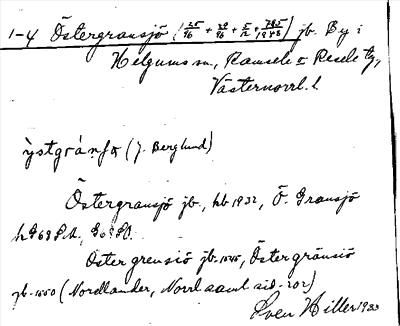 1-4 Östergransjö (25/96 + 29/96 + 5/12 + 785/1248) jb. By i
Helgums sn, Ramsele o Resele tg,
Västernorrl. l.
ỳstgrànʃö (J. Berglund)
Östergransjö jb., hb 1932, Ö. Gransjö
hG69SA, G69SO.
Öster grensiö jb. 1545, Öster gränsiö
jb. 1550 (Nordlander, Norrl. saml. sid. 202)
Sven Hiller 1933